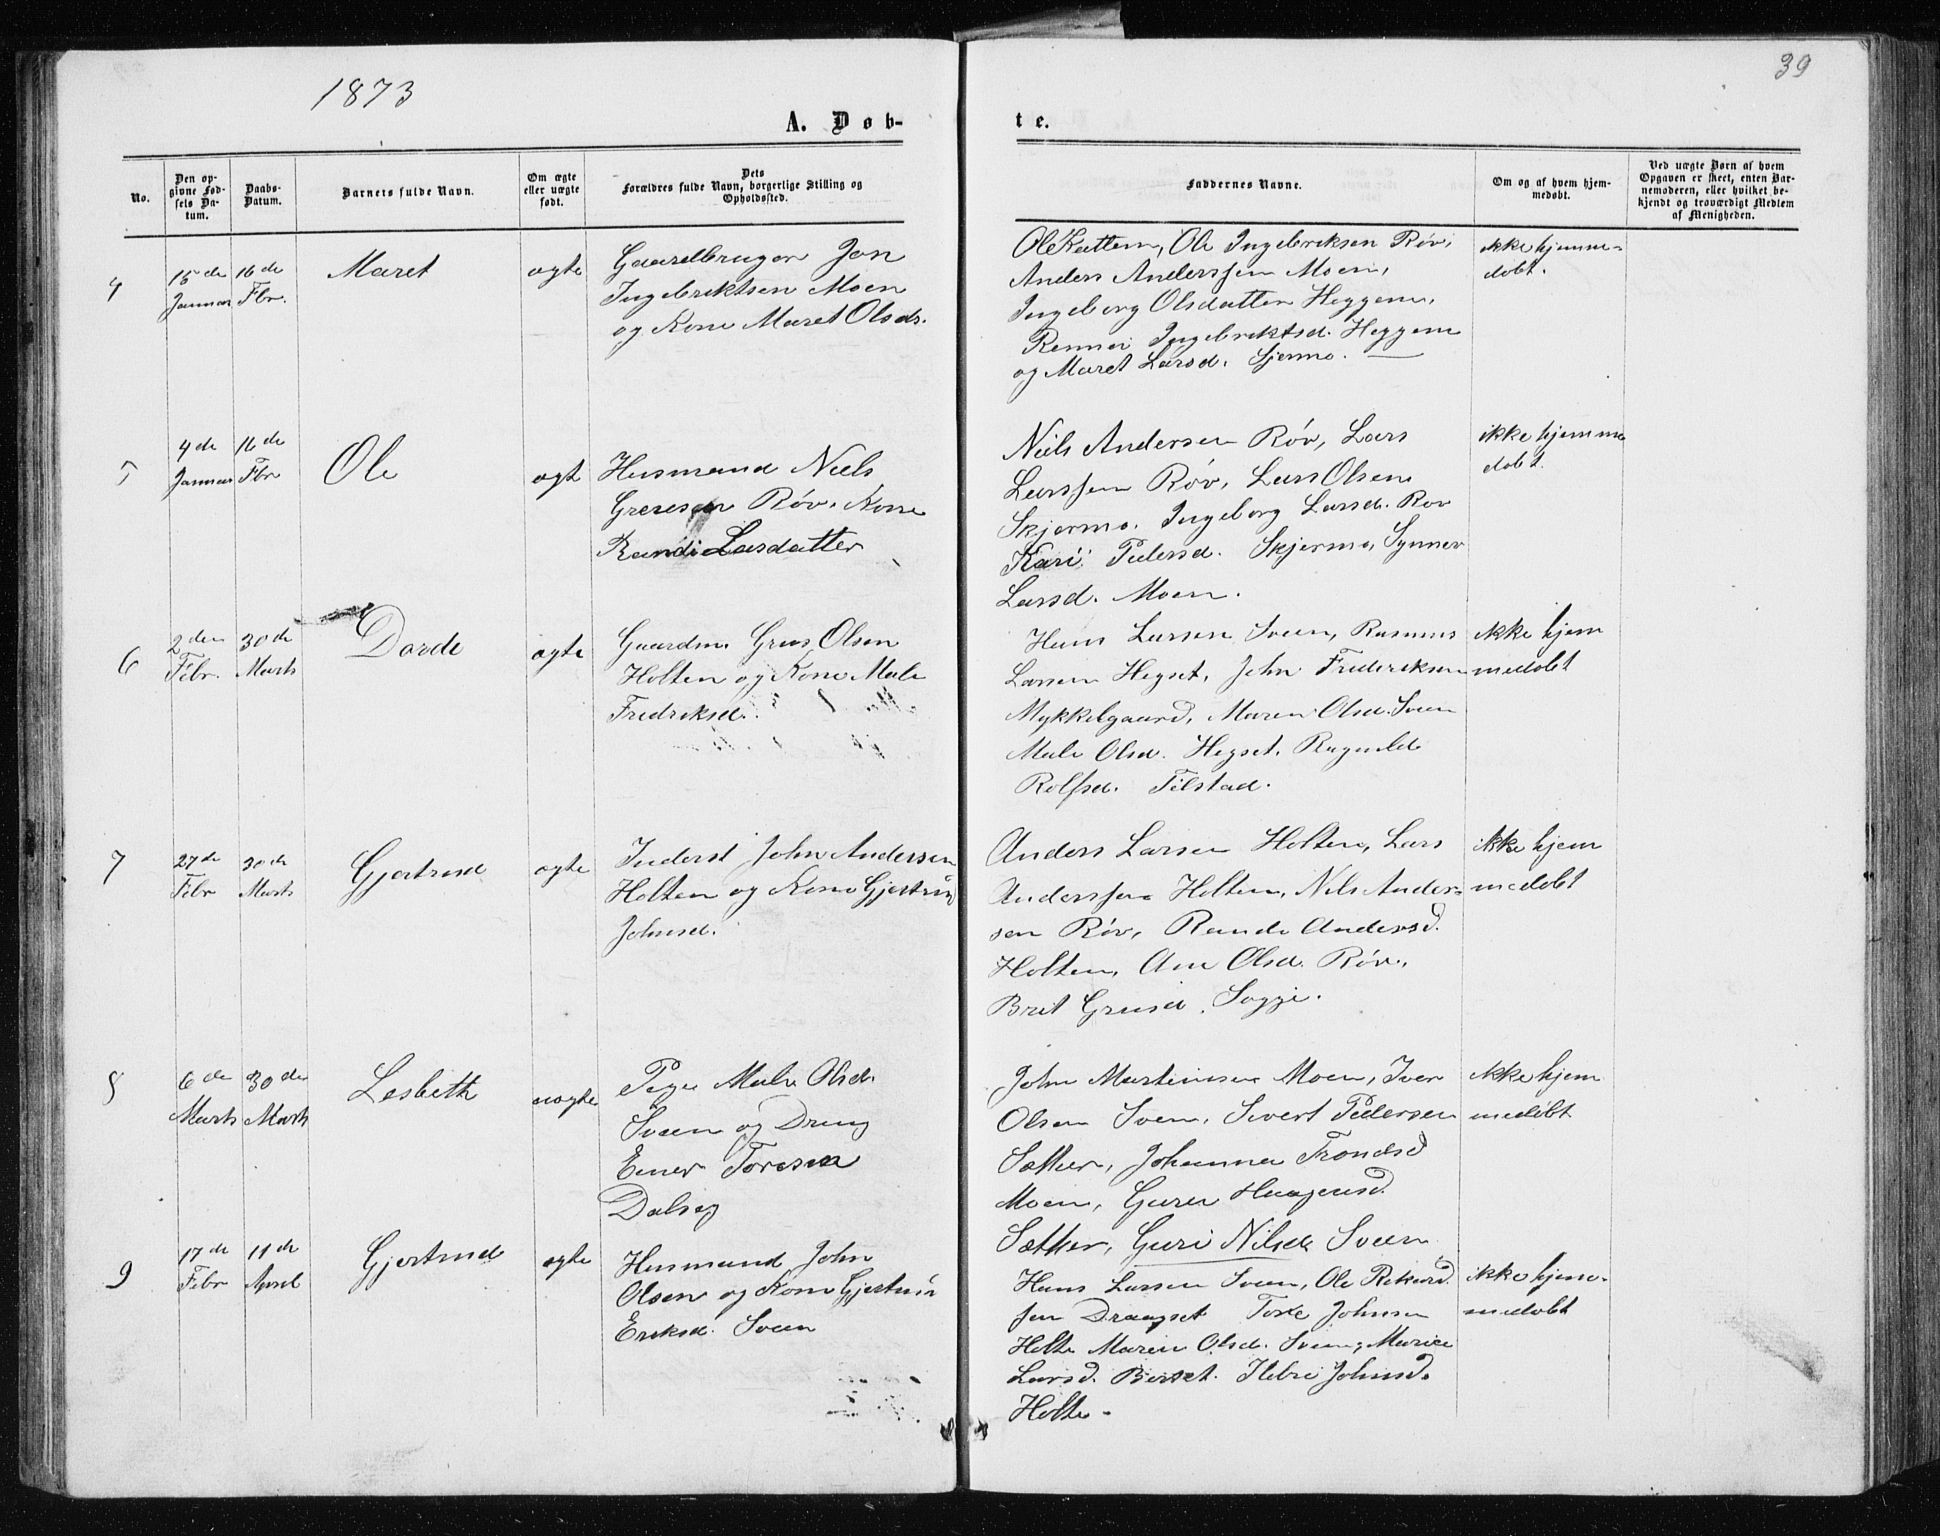 1873
39
A. Døb-
te.
No.
Den op-
givne Fød-
sels Da-
tum.
Daabs-
Datum.
Barnets fulde Navn.
Om ægte
eller uægte
født.
Dets
Forældres fulde Navn, borgerlige Stilling og
Opholdssted.
Faddernes Navne.
Om og af hvem hjem-
medøbt.
Ved uægte Børn af hvem
Opgaven er skeet, enten Bar-
nemoderen, eller hvilket be-
kjendt og troværdigt Medlem
af Menigheden.
4
15de
Januar
16de
Fbr.
Maret
ægte
Gaardbruger Jon
Ingebriktsen Moen
og Kone Maret Olsdr.
Ole Kattem, Ole Ingebriksen Røv,
Anders Anderssen Moen,
Ingeborg Olsdatter Heggem,
Ingebriktsd. Heggem
og Maret Larsd. Sjermo.
ikke hjemme-
døbt.
5
4de
Januar
16de
Fbr
Ole
ægt
Husmand Niels
Røv. Kone
Randi Larsdatter
Niels Andersen Røv, Lars
Larssen Røv, Lars Olsen
Skjermo. Ingeborg Larsd. Rov
Kari Pedersd. Skjermo, Synnev
Larsd. Moen.
ikke hjemme
døbt.
6
2den
Febr.
30de
Marts
Dorde
ægte
Gaardm. Olsen
Holten og Kone Mali
Fredriksd.
Hans Larsen Sveen, Rasmus
Larsen Hegset, John Frederiksen
Mykkelgaard, Maren Olsd. Sveen
Mali Olsd. Hegset. Ragnild
Rolfsd. Tilstad.
ikke hjem
medøbt
7
27de
Febr
30de
Marts
Gjertrud
ægte
Inderst John Andersen
Holten og Kone Gjertrud
Johnsd.
Anders Larsen Holten, Lars
Anderssen Holten, Nils Ander-
sen Røv, Randi Andersd.
Holten, Ane Olsd. Røv,
Brit Grusd. Sogge.
ikke hjem
medøbt
8
6de
Marts
30de
Marts
Lesbeth
uægte
Pige Mali Olsd.
Sveen og Dreng
Einer Toresen
Dalseg
John Martinusen Moen, Iver
Olsen Sveen, Sivert Pedersen
Sæther, Johanna Trondsd
Moen, Guru Haagensd.
Sæther, Guri Nilsd. Sveen
ikke hjem
medøbt
9
17de
Febr
11de
April
Gjertrud
ægte
Husmand John
Olsen og Kone Gjertrud
Eriksd. Sveen
Hans Larsen Sveen, Ole Rikard-
sen Draagset Tore Johnsen
Holte Maren Olsd. Sveen, Marie
Larsd. Berset. Johnsd.
Holte.
ikke hjem-
medøbt